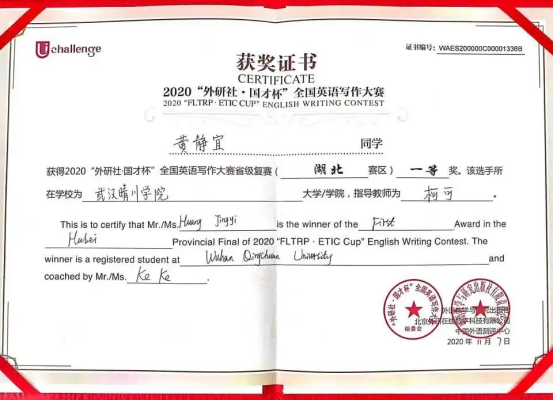 Uchallenge
证书编号：WAES200000C00001336B
获奖证书
CERTIFICATE
2020“外研社·国才杯”全国英语写作大赛
2020 “FLTRP·ETIC CUP” ENGLISH WRITING CONTEST
黄静宜 同学
获得2020“外研社·国才杯”全国英语写作大赛省级复赛（ 湖北 赛区） 一等 奖。该选手所
在学校为 武汉晴川学院 大学/学院，指导教师为 柯可
This is to certify that Mr./Ms. Huang Jingyi is the winner of the First Award in the
Hubei Provincial Final of 2020 “FLTRP · ETIC Cup” English Writing Contest. The
winner is a registered student at Wuhan Qingchuan University and
coached by Mr./Ms. Ke Ke
“外研社·国才杯”全国英语写作大赛
组委会
中国外语测评中心
2020 年 11 月 7 日